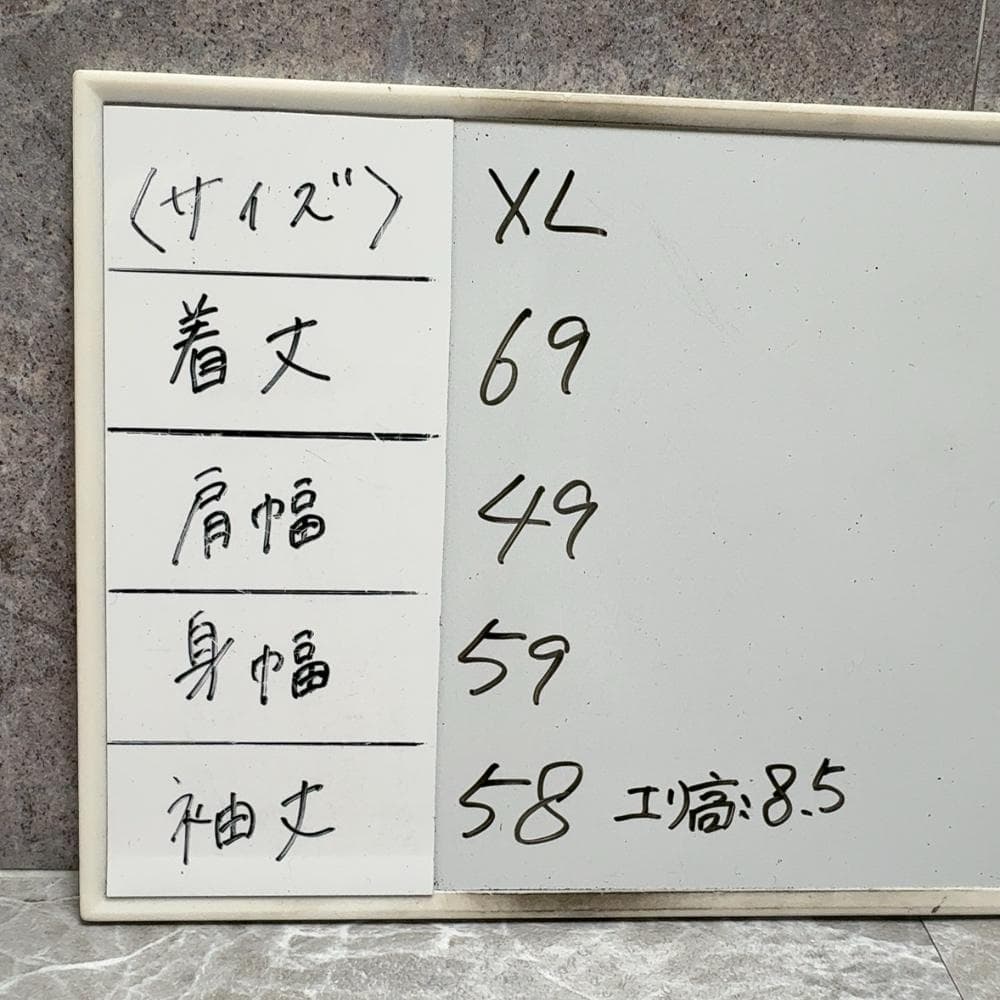 〈サイズ〉 XL
着丈 69
肩幅 49
身幅 59
袖丈 58 エリ高:8.5